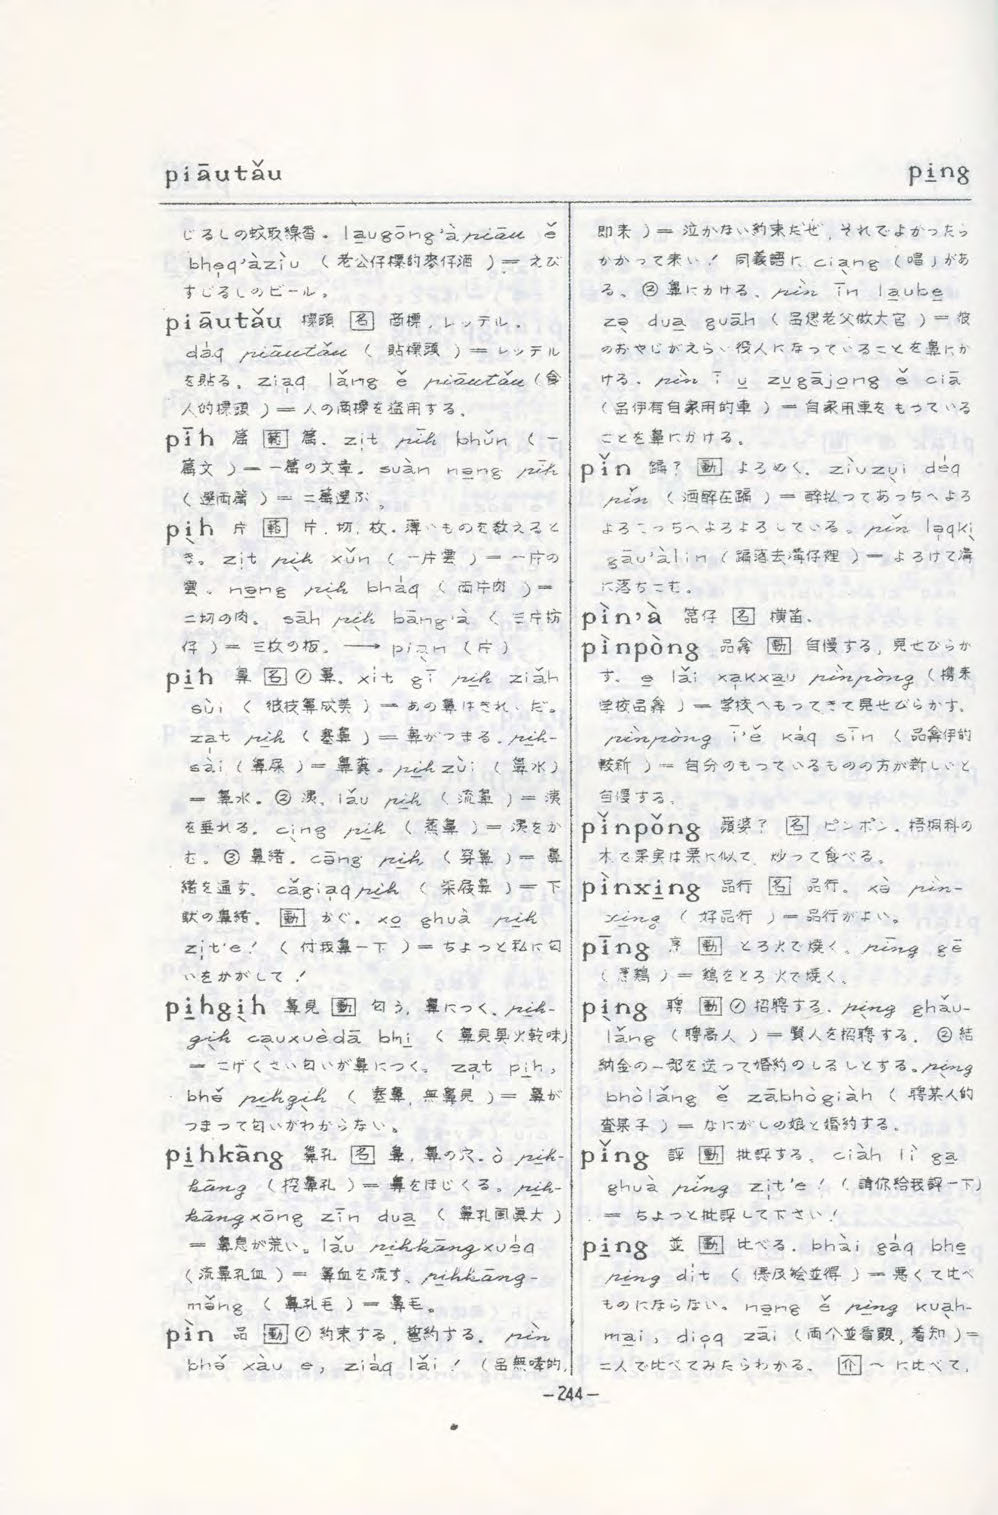 piāutǎu
pi̲ng
じるしの蚊取線香。la̲ugōng'à piāu ě
bhe̲q'àzi̍u ( 老公仔標的麥仔酒 ) = えび
すじるしのビール。
piāutǎu 標頭 [名] 商標,レッテル。
da̍q piāutǎu ( 貼標頭 ) = レッテル
を貼る。zia̲q lǎng ě piāutǎu (食
人的標頭 ) = 人の商標を盗用する。
pīh 篇 [範] 篇. zi̲t pīh bhǔn ( 一
篇文 ) = 一篇の文章。suàn nə̲ng pīh
( 選両篇 ) = 二篇選ぶ。
pi̱h 片 [範] 片,切,枚.薄いものを数えると
き。zi̲t pi̱h xǔn ( 一片雲 ) = 一片の
雲。nə̲ng pi̱h bha̍q ( 両片肉 ) =
二切の肉。sāh pi̱h bāng'à ( 三片枋
仔 ) = 三枚の板。 ─→ pia̱n (片)
pi̲h 鼻 [名] ① 鼻。xi̍t gī pi̲h ziǎh
sùi ( 彼枝鼻 美 ) = あの鼻はきれいだ。
za̲t pi̲h ( 塞鼻 ) = 鼻がつまる。pi̲h-
sài ( 鼻屎 ) = 鼻糞。pi̲hzùi ( 鼻水 )
= 鼻水。② 洟。lǎu pi̲h ( 流鼻 ) = 洟
を垂れる。ci̱ng pi̲h ( 鼻 ) = 洟をか
む。③ 鼻緒。cāng pi̲h ( 穿鼻 ) = 鼻
緒を通す。cǎgia̲qpi̲h ( 柴屐鼻 ) = 下
駄の鼻緒。[動] かぐ。xo̲ ghuà pi̲h
zi̲t'e! ( 付我鼻一下 ) = ちょっと私に匂
いをかがして!
pi̲hgi̱h 鼻見 [動] 匂う,鼻につく。pi̲h-
gi̱h ca̱uxuèdā bhi̲ ( 鼻見臭火乾味)
= こげくさい匂いが鼻につく。za̲t pi̲h,
bhě pi̲hgi̱h ( 塞鼻,無鼻見 ) = 鼻が
つまって匂いがわからない。
pi̲hkāng 鼻孔 [名] 鼻,鼻の穴。ò pi̲h-
kāng ( 挖鼻孔 ) = 鼻をほじくる。pi̲h-
kāngxōng zīn dua̲ ( 鼻孔風眞大 )
= 鼻息が荒い。lǎu pi̲hkāngxue̍q
(流鼻孔血 ) = 鼻血を流す。pi̲hkāng-
mə̌ng ( 鼻孔毛 ) = 鼻毛。
pìn 品 [動] ① 約束する,誓約する。pìn
bhə̌ xàu e, zia̍q lǎi! (品無哮的,
即来 ) = 泣かない約束だぜ,それでよかったら
かかって来い! 同義語に cia̱ng (唱)があ
る。② 鼻にかける。pìn īn la̲ube̲
zə̱ dua̲ guāh ( 品 老父做大官 ) = 彼
のおやじがえらい役人になっていることを鼻にか
ける。pìn ī u̲ zu̲gājo̲ng ě ciā
( 品伊有自家用的車 ) = 自家用車をもっている
ことを鼻にかける。
pǐn 蹁? [動] よろめく。ziùzu̱i de̍q
pǐn ( 酒醉在蹁 ) = 酔払ってあっちへよろ
よろこっちへよろよろしている。pǐn la̲qki̱
gāu'àlin ( 蹁落去溝仔裡 ) = よろけて溝
に落ちこむ。
pìn'à 笛仔 [名] 横笛。
pìnpòng 品 [動] 自慢する,見せびらか
す。e̲ lǎi xa̲kxa̱u pìnpòng (携来
学校品 ) = 学校へもってきて見せびらかす。
pìnpòng ī'ě ka̍q sīn ( 品 伊的
較新 ) = 自分のもっているものの方が新しいと
自慢する。
pǐnpǒng 蘋婆? [名] ピンポン.梧桐科の
木で果実は栗に似て,炒って食べる。
pìnxi̱ng 品行 [名] 品行。xə̀ pìn-
xi̱ng ( 好品行 ) = 品行がよい。
pīng 烹 [動] とろ火で焼く。pīng gē
( 烹鶏 ) = 鶏をとろ火で焼く。
pi̱ng 聘 [動] ① 招聘する。pi̱ng ghǎu-
lǎng ( 聘高人 ) = 賢人を招聘する。② 結
納金の一部を送って婚約のしるしとする。pi̱ng
bhòlǎng ě zābhògiàh ( 聘某人的
査某子 ) = なにがしの娘と婚約する。
pǐng 評 [動] 批評する。ciàh lì ga̲
ghuà pǐng zi̲t'e! ( 請你給我評一下)
= ちょっと批評して下さい!
pi̲ng 並 [動] 比べる。bhài ga̍q bhe̲
pi̲ng di̍t ( 僫及 並得 ) = 悪くて比べ
ものにならない。nə̲ng ě pi̲ng kua̱h-
mai, dio̲q zāi ( 両个並看覷,着知 ) =
二人で比べてみたらわかる。 [介] ~ に比べて,
—244—